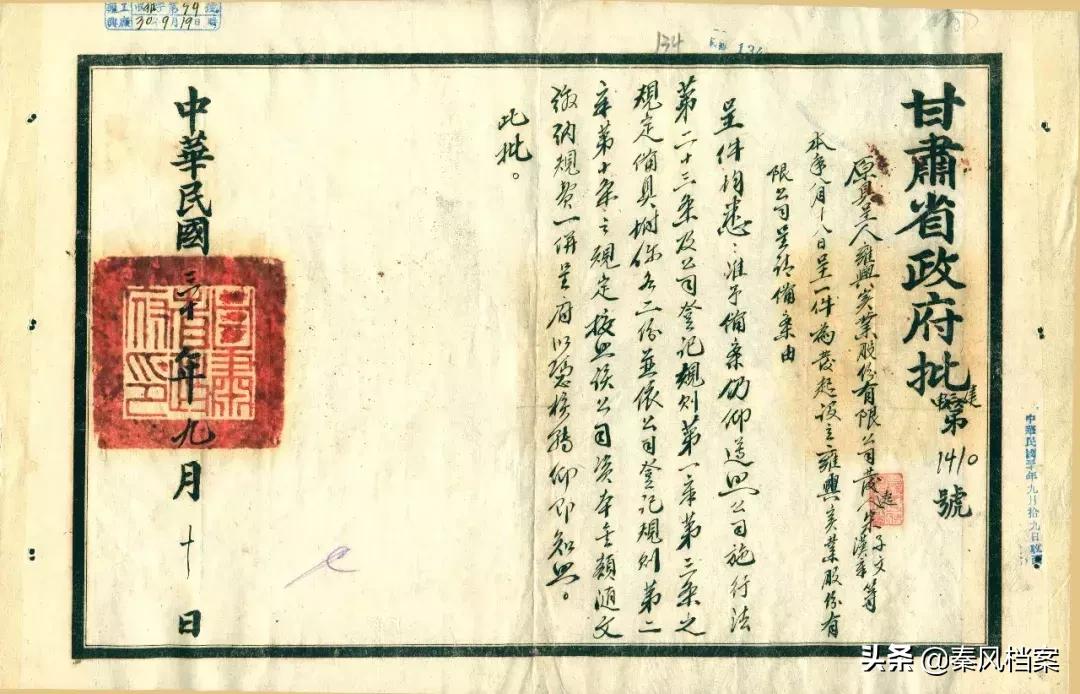 甘肅省政府批
第1410號
原具呈人雍興實業股份有限公司發起人宋子文等
本年八月十八日呈一件為發起設立雍興實業股份有
限公司呈請備案由
呈件均悉准予備案仍仰遵照公司施行法
第二十三条及公司登記規則第一章第三条之
規定備具附件各二份並依公司登記規則第二
章第十条之規定按照該公司資本金額隨文
繳納規費一併呈府以憑核轉仰即知照。
此批。
中華民國三十年九月十日
中華民國三十年九月拾九日收到
134
30年9月19日
头条 @秦风档案